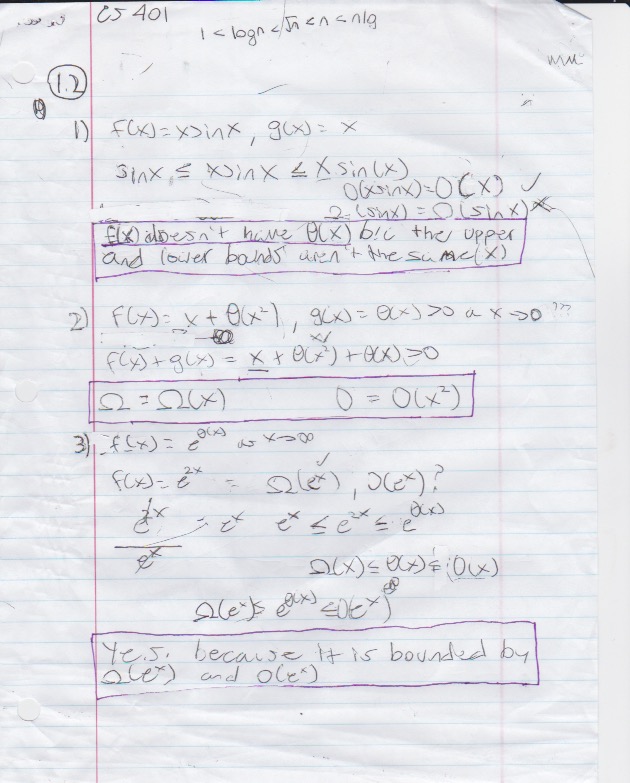 CS 401
1 < logn < √n < n < nlg
1.2
1) f(x) = xsinx, g(x) = x
sinx ≤ xsinx ≤ x sin(x)
O(xsinx) = O(x) ✓
(sinx) = Ω(sinx)
f(x) doesn't have θ(x) b/c the upper
and lower bands aren't the same (x)
2) f(x) = x + θ(x²), g(x) = θ(x) > 0 as x → 0 ???
f(x) + g(x) = x + θ(x²) + θ(x) > 0
Ω = Ω(x) O = O(x²)
3) f(x) = e^θ(x) as x → ∞
f(x) = e^2x = Ω(e^x), O(e^x)?
e^2x = e^x e^x ≤ e^2x ≤ e^θ(x)
e^x
Ω(x) ≤ θ(x) ≤ O(x)
Ω(e^x) ≤ e^θ(x) ≤ O(e^x)
Yes. because it is bounded by
Ω(e^x) and O(e^x)